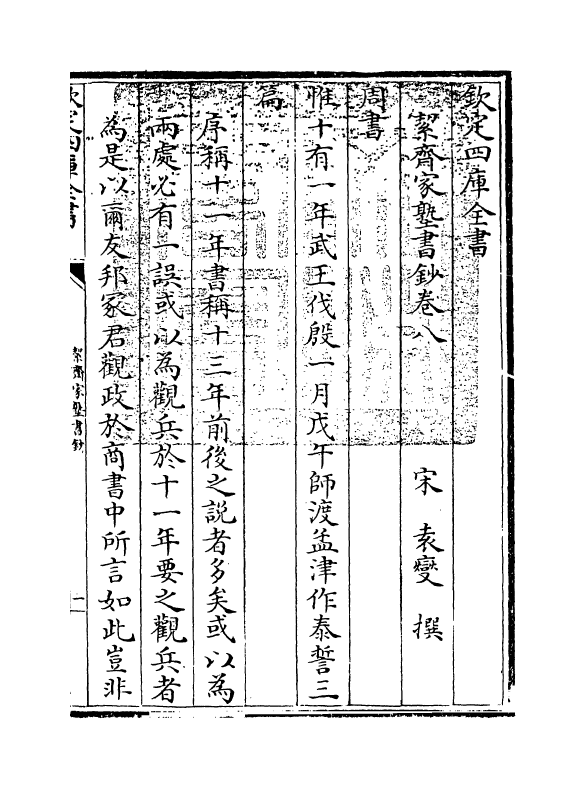 欽定四庫全書
絜齊家塾書鈔卷八
宋 袁燮 撰
周書
惟十有一年武王伐殷一月戊午師渡孟津作泰誓三
篇
序稱十一年書稱十三年前後之説者多矣或以為
兩處必有一誤或以為觀兵於十一年要之觀兵者
為是以爾友邦冢君觀政於商書中所言如此豈非
欽定四庫全書
絜齊家塾書鈔
一